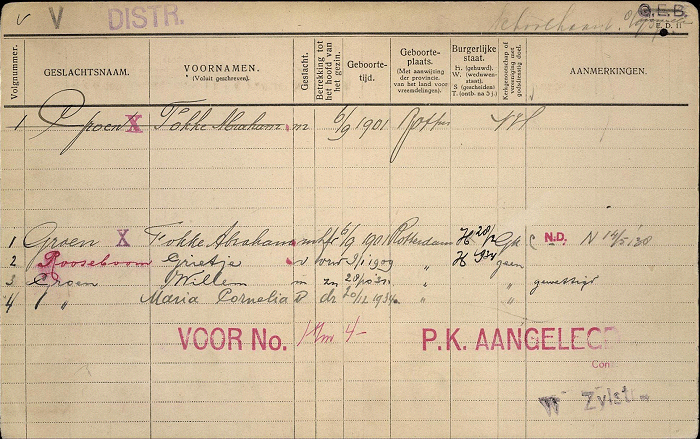 V V DISTR. G.E.B.
E.D. 11
Volgnummer. GESLACHTSNAAM. VOORNAMEN. (Voluit geschreven). Geslacht. Betrekking tot het hoofd van het gezin. Geboorte-tijd. Geboorte-plaats. (Met aanwijzing der provincie, van het land voor vreemdelingen). Burgerlijke staat. H. (gehuwd). W. (weduwen-staat). S (gescheiden) T. (ontb. na 3 j.) Kerkgenootschap of vereeniging met godsdienstig doel. AANMERKINGEN.
1 Groen X Fokke Abraham m 6/9 1901 Rotter NH
1 Groen X Fokke Abraham m 6/9 1901 Rotterdam H N.D. N 14/5 '38
2 Rooseboom Grietje v 3/1 1909 " H geen
3 Groen Willem m zn " " gewettigd
4 " " Maria Cornelia v dr 20/12 1934. " "
VOOR No. 1 t/m 4 - P.K. AANGELEGD
Con
W Zylstr